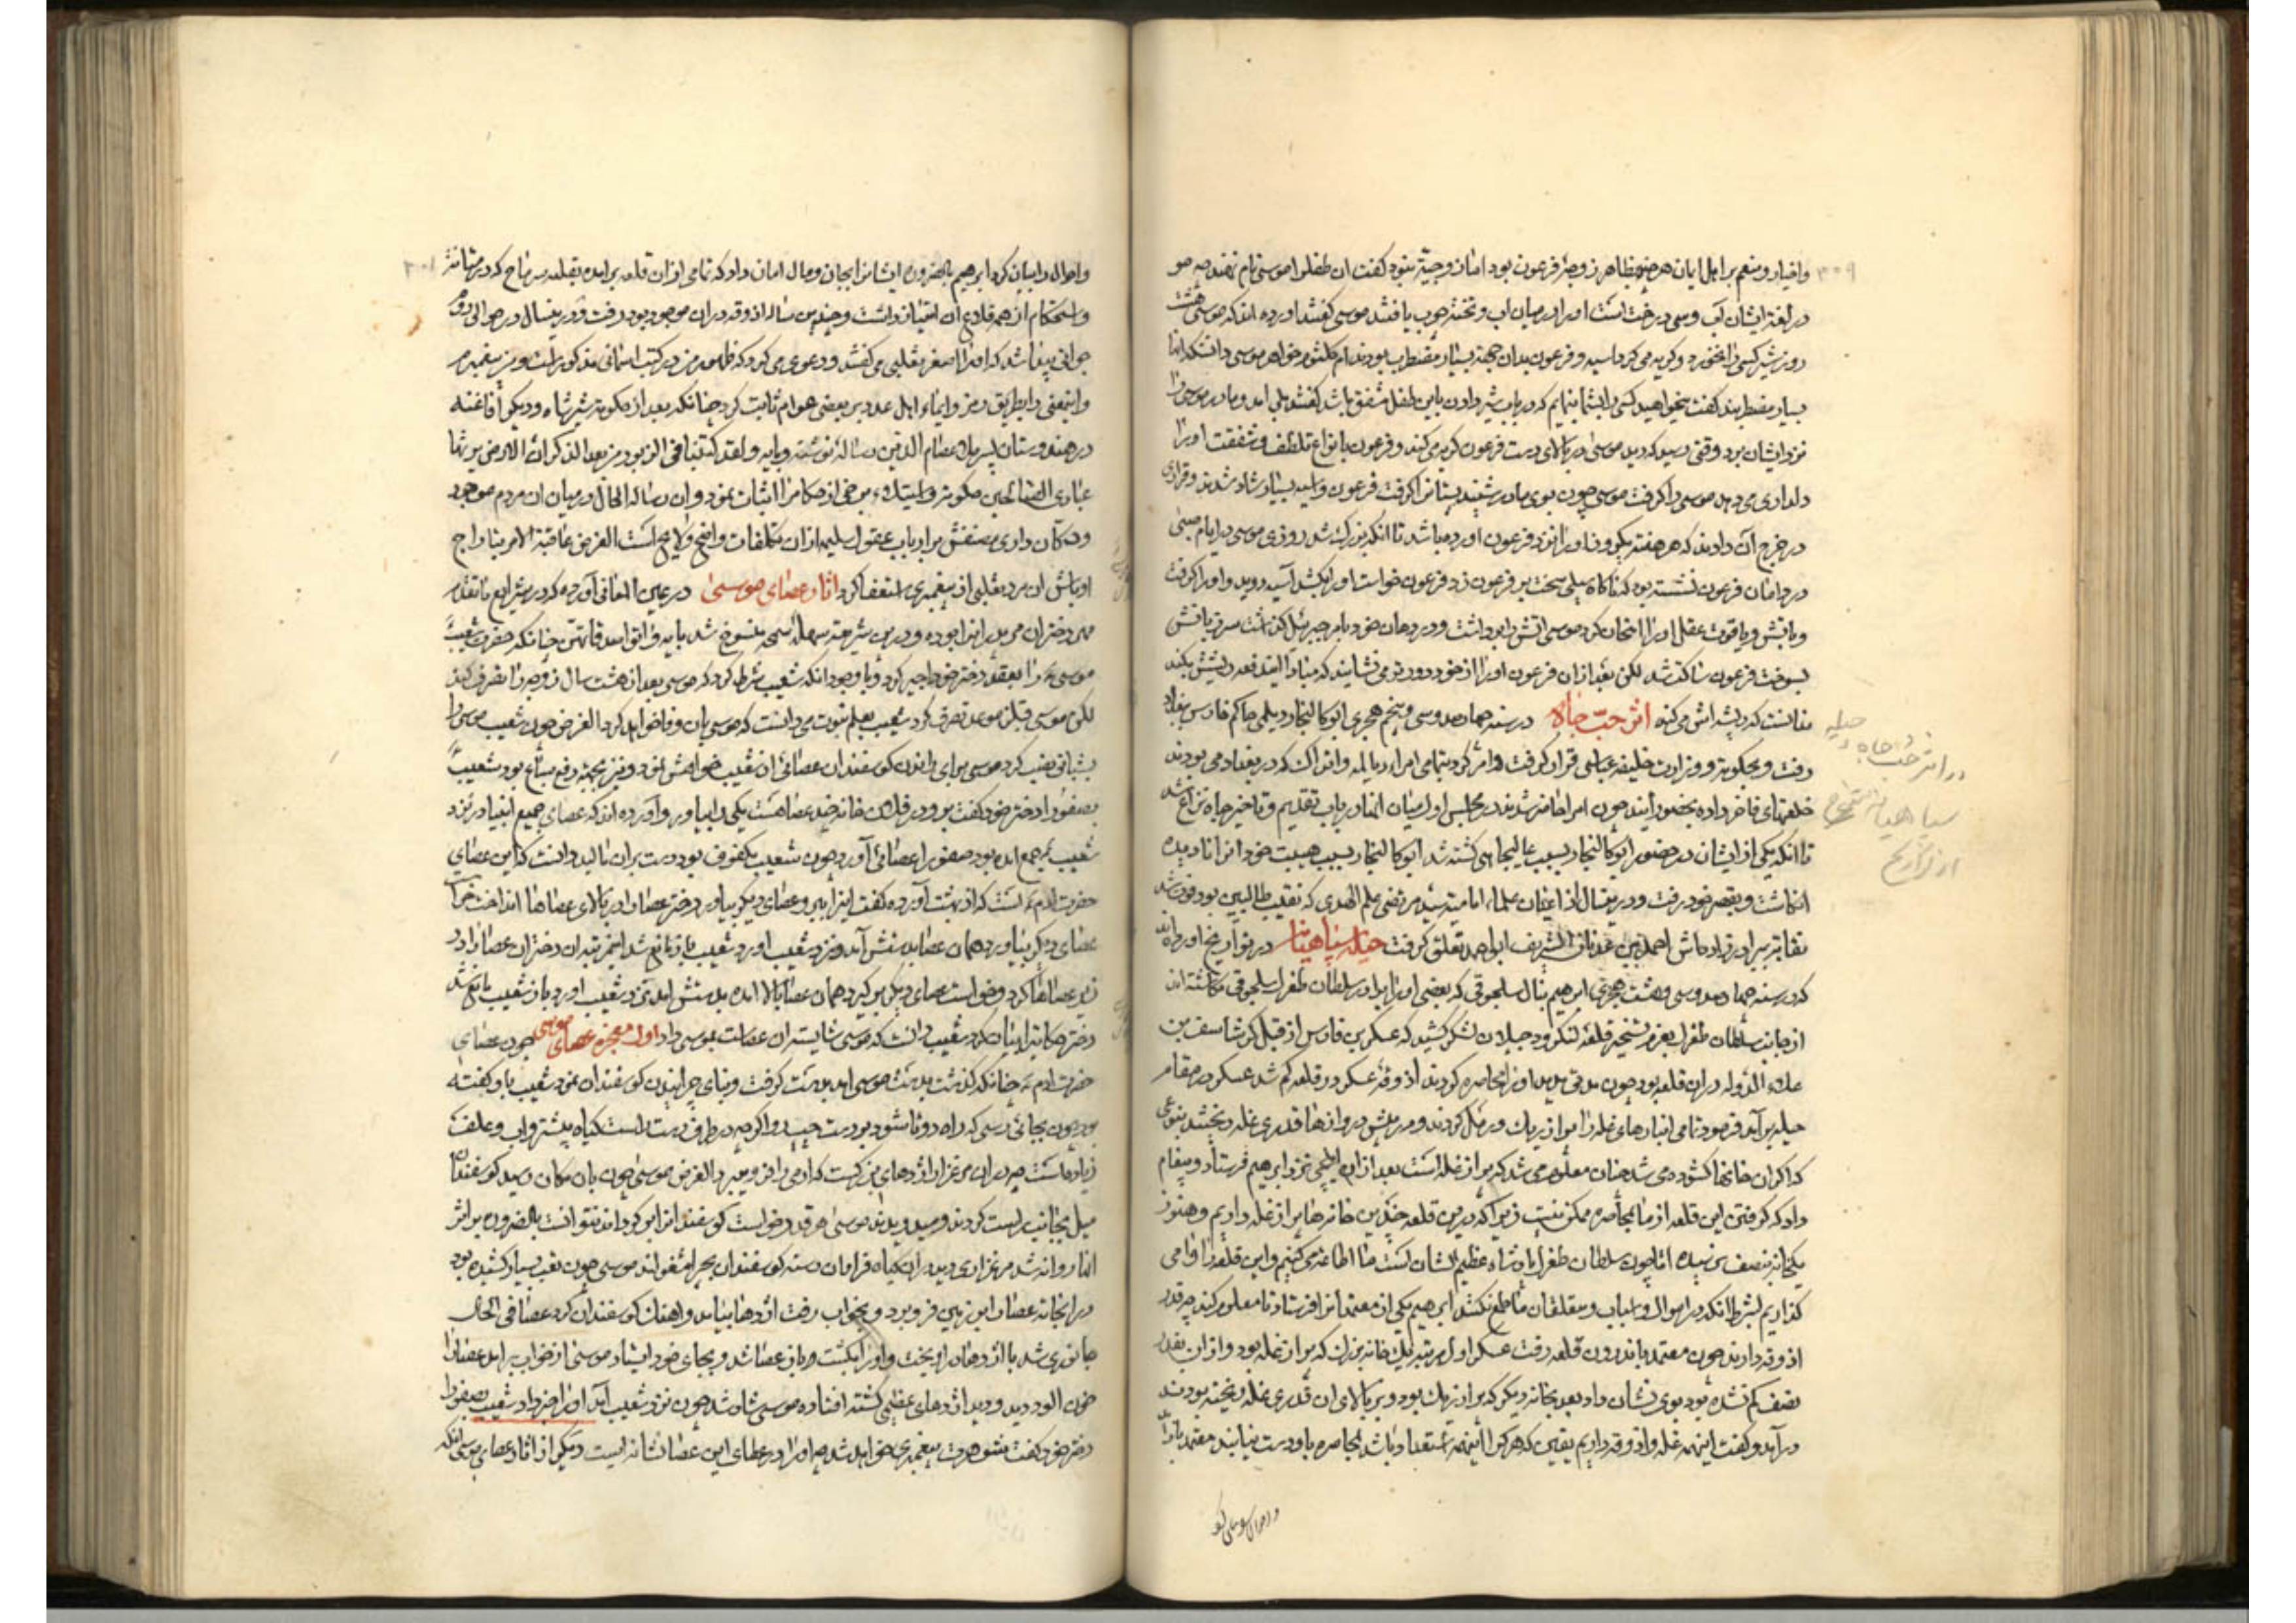 واخیار و منعم بر اهل ایمان هر چند بظاهر زوجهٔ فرعون بود اما زوجیّة نبود گفت ان طفل را موسی نام نهند چه مو
در لغة ایشان آب و سی درخت است او را در میان اب و تخته چوب یافتند موسی گفتند آورده اند که موسی هشت
روز شیر کسی را نخورد و گریه می کرد آسیه و فرعون بدان جهة بسیار مضطرب بودند ام کلثوم خواهر موسی دانست که انها
بسیار مضطربند گفت میخواهید کسی را بشما بنمایم که در باب شیر دادن باین طفل مشفق باشد گفتند بلی امد و مادر موسی را
نزد ایشان برد وقتی رسید که دید موسی در بالای دست فرعون گریه می کند و فرعون بانواع تلطف و شفقت او را
دلداری می دهد موسی را گرفت موسی چون بوی مادر شنید پستانش را گرفت فرعون و آسیه بسیار شاد شدند و قراری
در خرج آن دادند که هر هفته یکروز او را نزد فرعون اورده باشد تا انکه بزرگ شد روزی موسی در ایام صبی
در دامان فرعون نشسته بود که ناگاه سیلی سخت بر فرعون زد فرعون خواست او را بکشد آسیه دوید و او را گرفت
و باتش و یاقوت عقل او را امتحان کرد موسی اتش را برداشت و در دهان خود بامر جبرئیل گذاشت سر زبانش
بسوخت فرعون ساکت شد لکن بعد از ان فرعون او را از خود دورتر می نشانید که مبادا ایندفعه ریشش بکند
میدانست که ریشه اش می کند اثر حبّ جاه در سنه چهارصد و سی و پنجم هجری ابو کالنجار دیلمی حاکم فارس ببغداد
رفت و بحکومت و وزارت خلیفه عباسی قرار گرفت و امر کرد تمامی امراء دیالمه و اتراک که در بغداد می بودند
خلعتهای فاخر داده بحضور آیند چون امرا حاضر شدند در مجلس اول میان انها در باب تقدیم و تاخیر جاه نزاع شد
تا انکه یکی از ایشان در حضور ابو کالنجار بسبب عالیجاهی کشته شد ابو کالنجار بسبب هیبت خود انرا نادیده
انکاشت و بقصر خود رفت و در ینسال از اعیان علماء امامیه سید مرتضی علم الهدی که نقیب طالبین بود فوت شد
نقابت ببرادر زاده اش احمد بن عدنان الشریف ابو احمد تعلق گرفت حیله سپاهیان در تواریخ آورده اند
که در سنه چهارصد و سی و هشت هجری ابراهیم ینال سلجوقی که بعضی او را برادر سلطان طغرل سلجوقی نگاشته اند
از جانب سلطان طغرل بعزم تسخیر قلعه کنکرود جیلان لشکر کشید که عسکر بن فارس از قبل کرشاسف بن
علاء الدوله در ان قلعه بود چون مدتی مدید او را محاصره کردند اذوقه عسکر در قلعه کم شد عسکر در مقام
حیله بر آمد فرمود تا می انبارهای غله را پر از ریک و رمل کردند و در پیش دروازها قدری غله ریختند بنوعی
که اگر ان خانها کشوده می شد چنان معلوم می شد که پر از غله است بعد از ان ایلچی نزد ابراهیم فرستاد و پیغام
داد که گرفتن این قلعه از ما بمحاصره ممکن نیست زیرا که در این قلعه چندین خانه ها پر از غله داریم و هنوز
یکخانه بنصف نرسیده اما چون سلطان طغرل پادشاه عظیم الشان است ما اطاعه می کنیم و این قلعه را وامی
گذاریم بشرط انکه در اموال و اسباب و متعلقان ما طمع نکنند ابراهیم یکی از معتمدانرا فرستاد تا معلوم کند چه قدر
اذوقه دارند چون معتمد باندرون قلعه رفت عسکر اول مرتبه یک خانه بزرک که پر از غله بود و از ان بقدر
نصف کم نشده بود بوی نشان داد بعد بخانه دیگر که پر از ریک بود و بر بالای ان قدری غله ریخته بودند
در آمد و گفت اینهمه غله و اذوقه داریم یقین که هر که را اینهمه استعداد باشد محاصره باو درست نیاید معتمد باز آمد
و احوال
در اثر حب جاه و حیله
سپاهیان
از تواریخ
واحوال را بیان کرد ابراهیم بالضروره ایشانرا بجان و مال امان داد که تا می از ان قلعه بر امده بقلعه سرماج که در متانت
و استحکام از همه قلاع ان امتیاز داشت و چندین ساله اذوقه در ان موجود بود رفت و در ینسال در حوالی
جوانی پیدا شد که او را اصغر تغلبی می گفتند و دعوی می کرد که ظهور من در کتب اسمانی مذکور است و من پیغمبرم
و اینمعنی را بطریق رمز و ایماء اهل عدد بر بعضی عوام ثابت کرد چنانکه بعد از حکومت شیر شاه و دیگر افاغنه
در هندوستان پسر ملا عصام الدین رساله نوشته و بآیه ولقد کتبنا فی الزبور من بعد الذکر ان الارض یرثها
عبادی الصالحین حکومت و برخی از حکام را اثبات نمود و ان رساله الحال در میان ان مردم موجود
و دکان داری مصنفش بر ارباب عقول سلیم از ان تکلفات واضح و لایح است الغرض عاقبة الامر بنا واج
اوباش ان مرد تغلبی از پیغمبری استعفا کرد اثار عصای موسی در عین المعانی آورده که در شرایع ما تقدم
مهر دختران مر پدر انرا بوده و در این شریعت سهله سمحه منسوخ شد بآیه و اتوا صدقاتهن چنانکه حضرت شعیب
موسی را بعقد دختر خود اجیر کرد و با وجود انکه شعیب شرط کرد که موسی بعد از هشت سال زوجه را تصرف کند
لکن موسی قبل از موعد تصرف کرد شعیب بعلم نبوت می دانست که موسی بان وفا خواهد کرد الغرض چون شعیب موسی را
بشبانی نصب کرد موسی برای راندن گوسفندان عصائی از شعیب خواهش نمود و نیز بجهة دفع سباع بود شعیب
بصفورا دختر خود گفت برو در فلان خانه چند عصا هست یکی را بیاور و آورده اند که عصای جمیع انبیا در نزد
شعیب جمع امده بود صفورا عصائی آورد چون شعیب مکفوف بود دست بر ان مالید دانست که این عصای
حضرت آدم است که از بهشت آورده گفت اینرا ببر و عصای دیگر بیاور دختر عصا را در بالای عصاها انداخت خواست
عصای دیگر بیاورد همان عصا بدستش آمد و نزد شعیب اورد شعیب باز مانع شد اینمرتبه ان دختر ان عصا را در
زیر عصاها کرد و خواست عصای دیگر بر گیرد همان عصا بالا امده بدستش امد نزد شعیب اورد باز شعیب مانع شد
دختر حکایت را بیان کرد شعیب دانست که موسی شایسته ان عصاست بموسی داد اول معجزه عصای موسی چون عصای
حضرت ادم چنانکه گذشت بدست موسی امد بدست گرفت و بنای چرانیدن گوسفندان نمود شعیب باو گفته
بود چون بجائی رسی که راه دو تا شود بدست چپ رو اگرچه در طرف دست راست گیاه بیشتر و اب و علف
زیاد است چه در ان مرغزار اژدهای بزرگیست که ادمی را فرو میبرد الغرض موسی چون بان مکان رسید گوسفندان
میل بجانب راست کردند و میدویدند موسی هر قدر خواست گوسفندانرا بر گرداند نتوانست بالضروره بر اثر
انها روانه شد مرغزاری دید در ان گیاه فراوان رسته گوسفندان بچرا مشغول اند موسی چون تعب بسیار کشیده بود
در انجا ته عصا را بر زمین فرو برد و بخواب رفت اژدها بیامد و اهنک گوسفندان کرد عصا فی الحال
جانوری شد با اژدها در اویخت و او را بکشت و باز عصا شد و بجای خود ایستاد موسی از خواب بر امد عصا را
خون الود دید و دید اژدهای عظیمی کشته افتاده موسی شاد شد چون نزد شعیب آمد او را خبر داد شعیب بصفورا
دختر خود گفت شوهرت پیغمبری خواهد شد چه او را در عطای این عصا نشانه ایست دیگر از اثار عصای موسی انکه